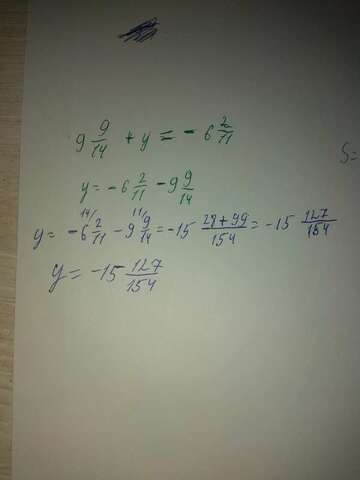 9 9/14 + y = - 6 2/11
y = - 6 2/11 - 9 9/14
y = - 6 2/11 14/ - 9 9/14 11/ = - 15 (28 + 99)/154 = - 15 127/154
y = - 15 127/154
S =